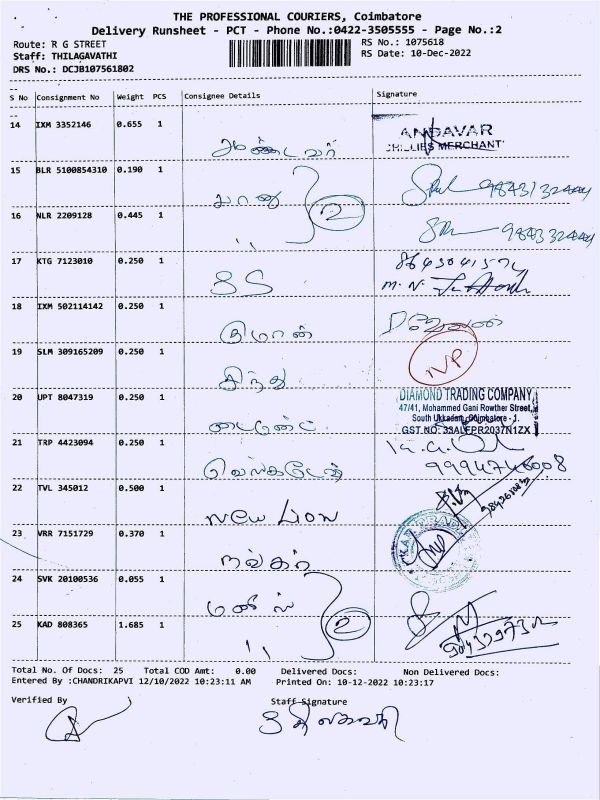 THE PROFESSIONAL COURIERS, Coimbatore
Delivery Runsheet - PCT - Phone No.:0422-3505555 - Page No.:2
Route: R G STREET
RS No.: 1075618
Staff: THILAGAVATHI
RS Date: 10-Dec-2022
DRS No.: DCJB107561802
S No Consignment No Weight PCS Consignee Details Signature
14 IXM 3352146 0.655 1
ஆண்டவர்
ANDAVAR
CHILLIES MERCHANT
15 BLR 5100854310 0.190 1
பானு
2
16 NLR 2209128 0.445 1
"
17 KTG 7123010 0.250 1
SS
18 IXM 502114142 0.250 1
19 SLM 309165209 0.250 1
சிந்து
IVP
20 UPT 8047319 0.250 1
DIAMOND TRADING COMPANY
47/41, Mohammed Gani Rowther Street,
South Ukkadam, Coimbatore - 1.
GST NO: 33ALFPR2037N1ZX
21 TRP 4423094 0.250 1
வெங்கடேஷ்
22 TVL 345012 0.500 1
New Lion
23 VRR 7151729 0.370 1
24 SVK 20100536 0.055 1
2
25 KAD 808365 1.685 1
"
Total No. Of Docs: 25 Total COD Amt: 0.00 Delivered Docs: Non Delivered Docs:
Entered By :CHANDRIKAPVI 12/10/2022 10:23:11 AM Printed On: 10-12-2022 10:23:17
Verified By Staff Signature
திலகவதி